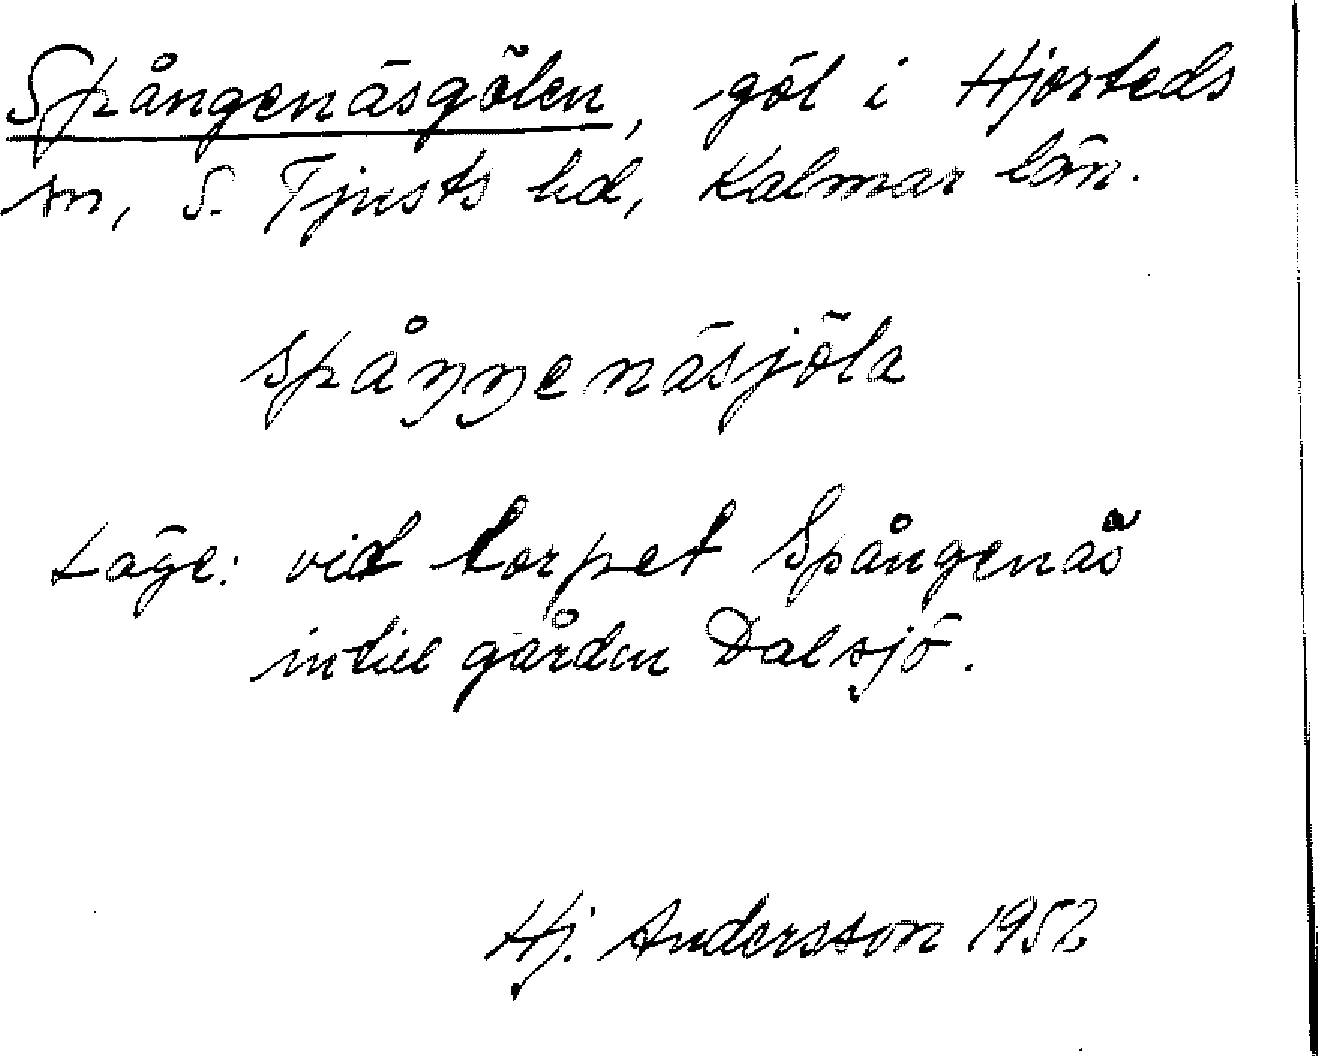 Spångenäsgölen, göl i Hjorteds
sn, S. Tjusts hd, Kalmar län.
spåŋŋenäsjöla
Läge: vid torpet Spångenäs
intill gården Dalsjö.
Hj. Andersson 1952